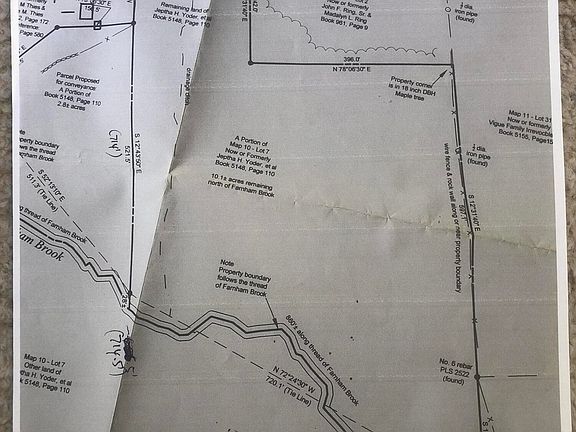 M. Thies &
M. Thies
2, Page 172
Page 580
Remaining land of
Jeptha H. Yoder, et
Book 5148, Page 110
Now or Formerly
John F. Ring, Sr. &
Madalyn L. Ring
Book 961, Page 9
½ dia.
iron pipe
(found)
396.0'
N 78°06'30" E
Property corner
is in 18 inch DBH
Maple tree
Parcel Proposed
for conveyance
A Portion of
Book 5148, Page 110
2.8± acres
drainage ditch
S 12°43'50" E
521.5'
(714')
Map 11 - Lot 31
Now or formerly
Vigue Family Irrevocable
Book 5155, Page15
½ dia.
iron pipe
(found)
A Portion of
Map 10 - Lot 7
Now or Formerly
Jeptha H. Yoder, et al
Book 5148, Page 110
10.1± acres remaining
north of Farnham Brook
S 12°31'40" E
597.1'
wire fence & rock wall along or near property boundary
Note
Property boundary
follows the thread
Farnham Brook
S 52°13'10" E
511.3' (Tie Line)
thread of Farnham Brook
am Brook
Note
Property boundary
follows the thread
of Farnham Brook
78±
(714.5')
890'± along thread of Farnham Brook
N 72°24'30" W
720.1' (Tie Line)
No. 6 rebar
PLS 2522
(found)
Map 10 - Lot 7
Other land of
tha H. Yoder, et al
5148, Page 110